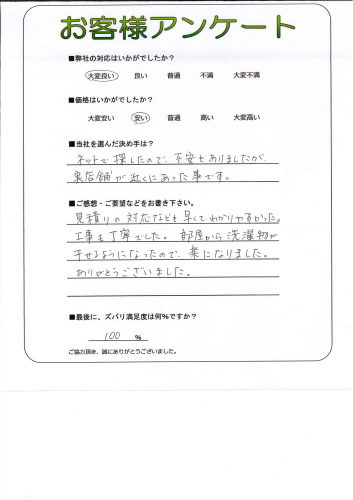 お客様アンケート
■弊社の対応はいかがでしたか?
大変良い 良い 普通 不満 大変不満
■価格はいかがでしたか?
大変安い 安い 普通 高い 大変高い
■当社を選んだ決め手は?
ネットで探したので、不安もありましたが、
実店舗が近くにあった事です。
■ご感想・ご要望などをお書き下さい。
見積りの対応なども早くてわかりやすかった。
工事も丁寧でした。部屋から洗濯物が
干せるようになったので、楽になりました。
ありがとうございました。
■最後に、ズバリ満足度は何%ですか?
100 %
ご協力頂き、誠にありがとうございました。